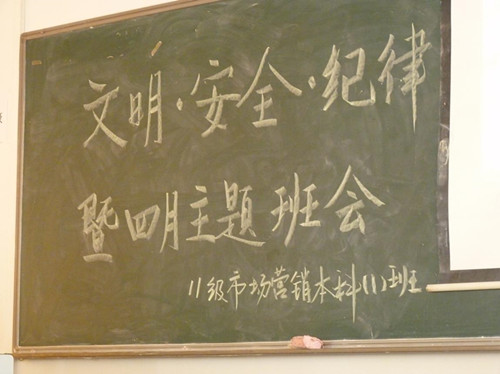 文明·安全·纪律
暨四月主题班会
11级市场营销本科(1)班